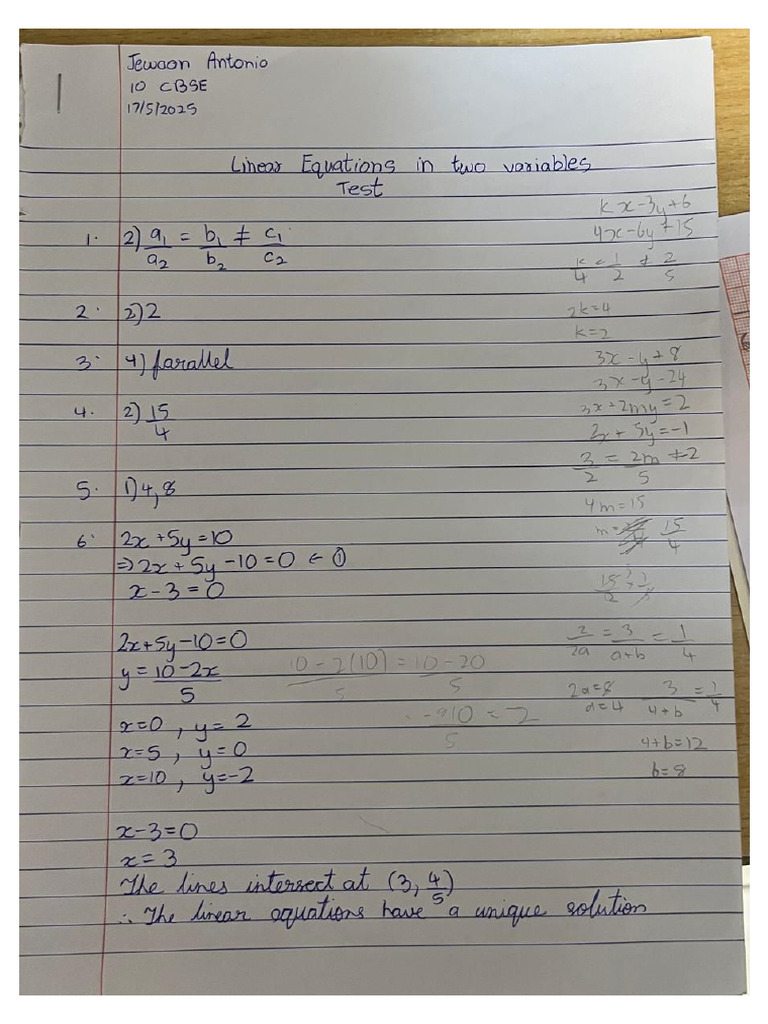 Jewaon Antonio
10 CBSE
17/5/2025
Linear Equations in two variables
Test
1. 2) a₁/a₂ = b₁/b₂ ≠ c₁/c₂
2. 2) 2
3. 4) parallel
4. 2) 15/4
5. 1) 4, 8
6. 2x + 5y = 10
⇒ 2x + 5y - 10 = 0 ← ①
x - 3 = 0
2x + 5y - 10 = 0
y = 10 - 2x / 5
x = 0 , y = 2
x = 5 , y = 0
x = 10 , y = -2
x - 3 = 0
x = 3
The lines intersect at (3, 4/5)
∴ The linear equations have a unique solution
kx - 3y + 6
4x - 6y + 15
k/4 = 1/2 ≠ 2/5
2k = 4
k = 2
3x - y + 8
3x - y - 24
3x + 2my = 2
2x + 5y = -1
3/2 = 2m/5 ≠ -2
4m = 15
m = 15/4
2/2a = 3/a+b = 1/4
2a = 8
a = 4
3/4+b = 1/4
4 + b = 12
b = 8
10 - 2(10)/5 = 10 - 20/5